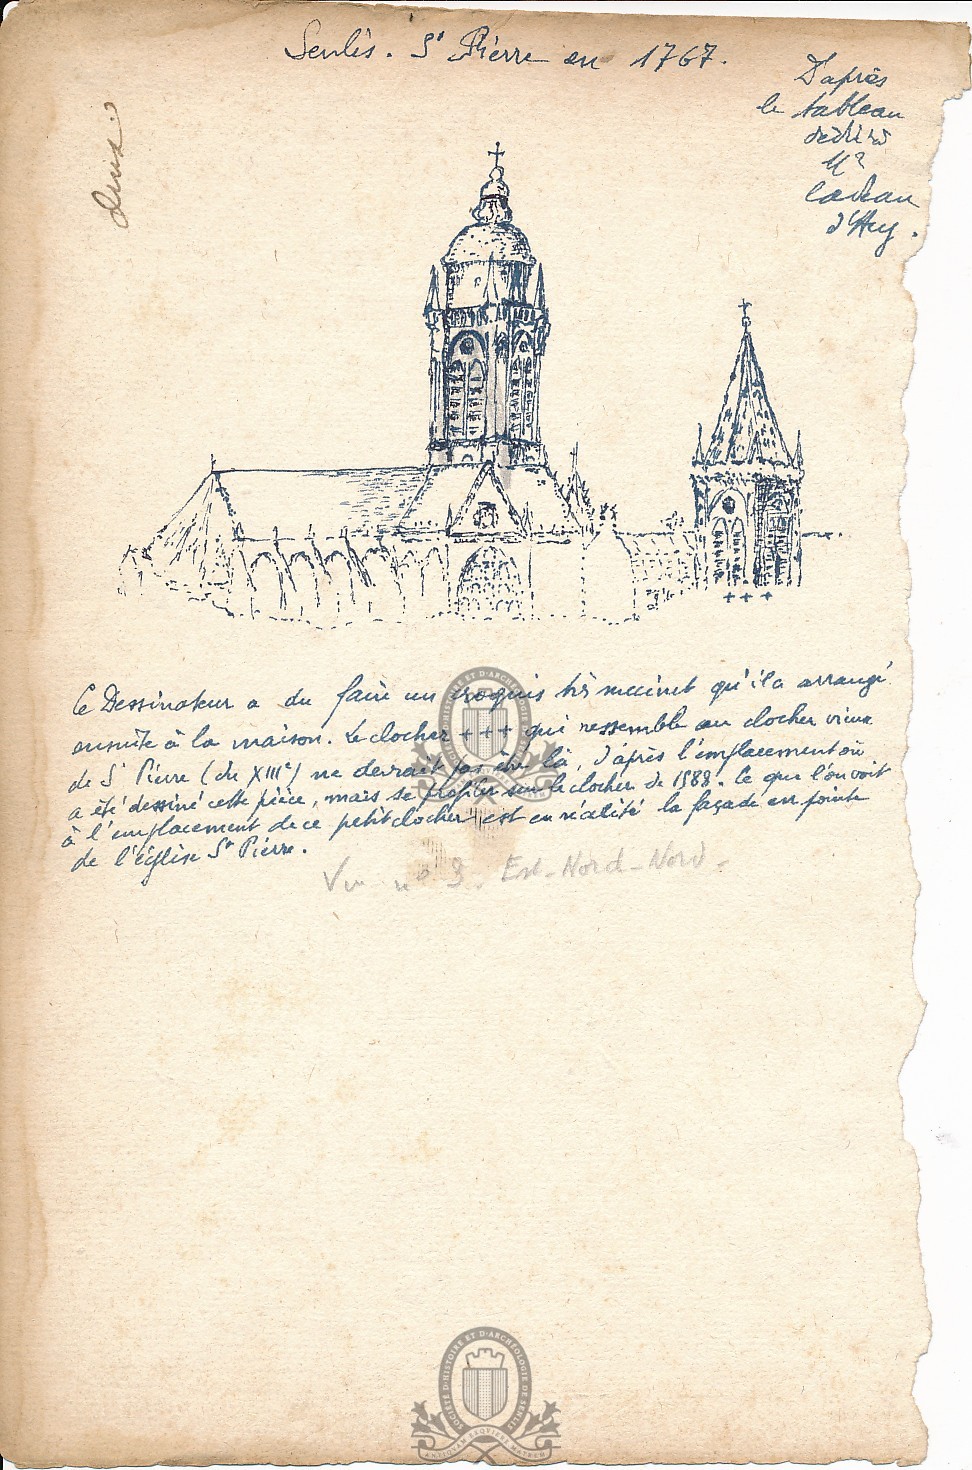 Senlis. St Pierre en 1767.
D'après
le tableau
dédié à
Mr
d'Acy.
Le Dessinateur a du faire un croquis très succinct qu'il a arrangé
ensuite à la maison. Le clocher +++ qui ressemble au clocher vieux
de St Pierre (du XIIIe) ne devrait pas être là, d'après l'emplacement où
a été dessiné cette pièce, mais se profiler sur le clocher de 1588. Ce que l'on voit
à l'emplacement de ce petit clocher est en réalité la façade en pointe
de l'église St Pierre.
+++
Vu n° 3. Est-Nord-Nord.
SOCIÉTÉ D'HISTOIRE ET D'ARCHÉOLOGIE DE SENLIS